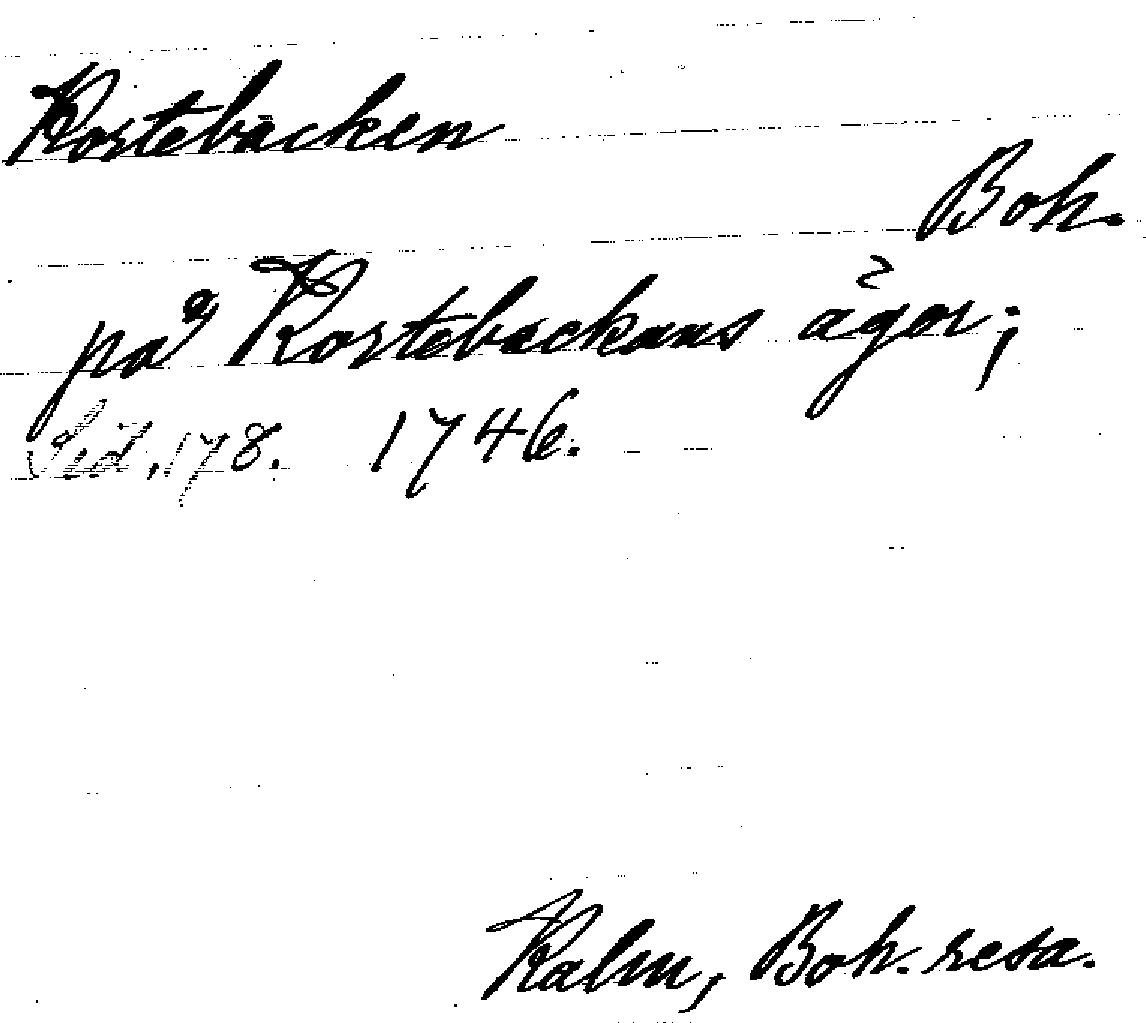 Kortebacken
Boh.
på Kortebackans ägor;
Sid. 178. 1746.
Kalm, Boh. resa.